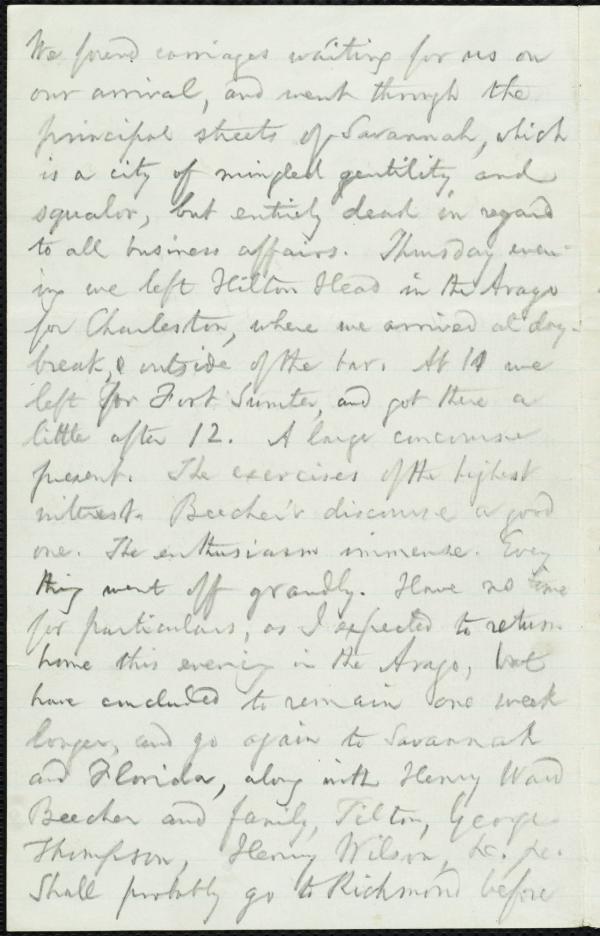 We found carriages waiting for us on
our arrival, and went through the
principal streets of Savannah, which
is a city of mingled gentility and
squalor, but entirely dead in regard
to all business affairs. Thursday even-
ing we left Hilton Head in the Arago
for Charleston, where we arrived at day-
break, outside of the bar. At 11 we
left for Fort Sumter, and got there a
little after 12. A large concourse
present. The exercises of the highest
interest. Beecher's discourse a good
one. The enthusiasm immense. Every
thing went off grandly. Have no time
for particulars, as I expected to return
home this evening in the Arago, but
have concluded to remain one week
longer, and go again to Savannah
and Florida, along with Henry Ward
Beecher and family, Tilton, George
Thompson, Henry Wilson, &c. &c.
Shall probably go to Richmond before